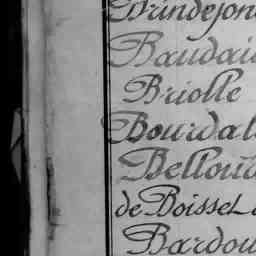 Brindejon
Baudai
Briolle
Bourdal
Bellour
de Boisset
Bardou